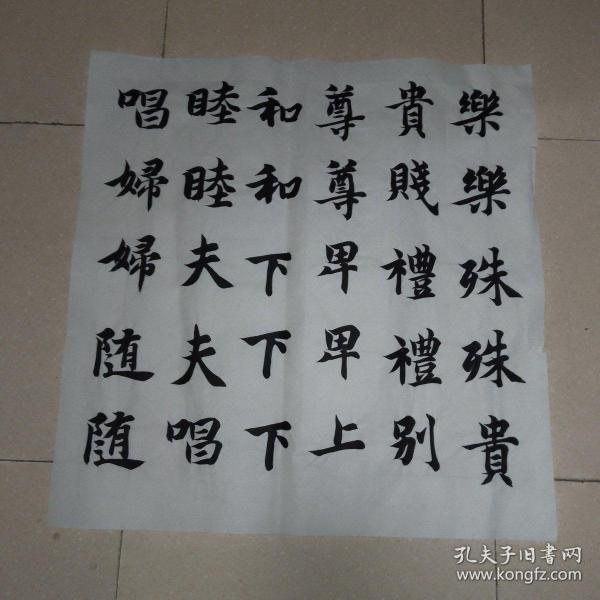 樂樂殊殊貴
貴賤禮禮別
尊尊卑卑上
和和下下下
睦睦夫夫唱
唱婦婦随随
孔夫子旧书网
www.kongfz.com